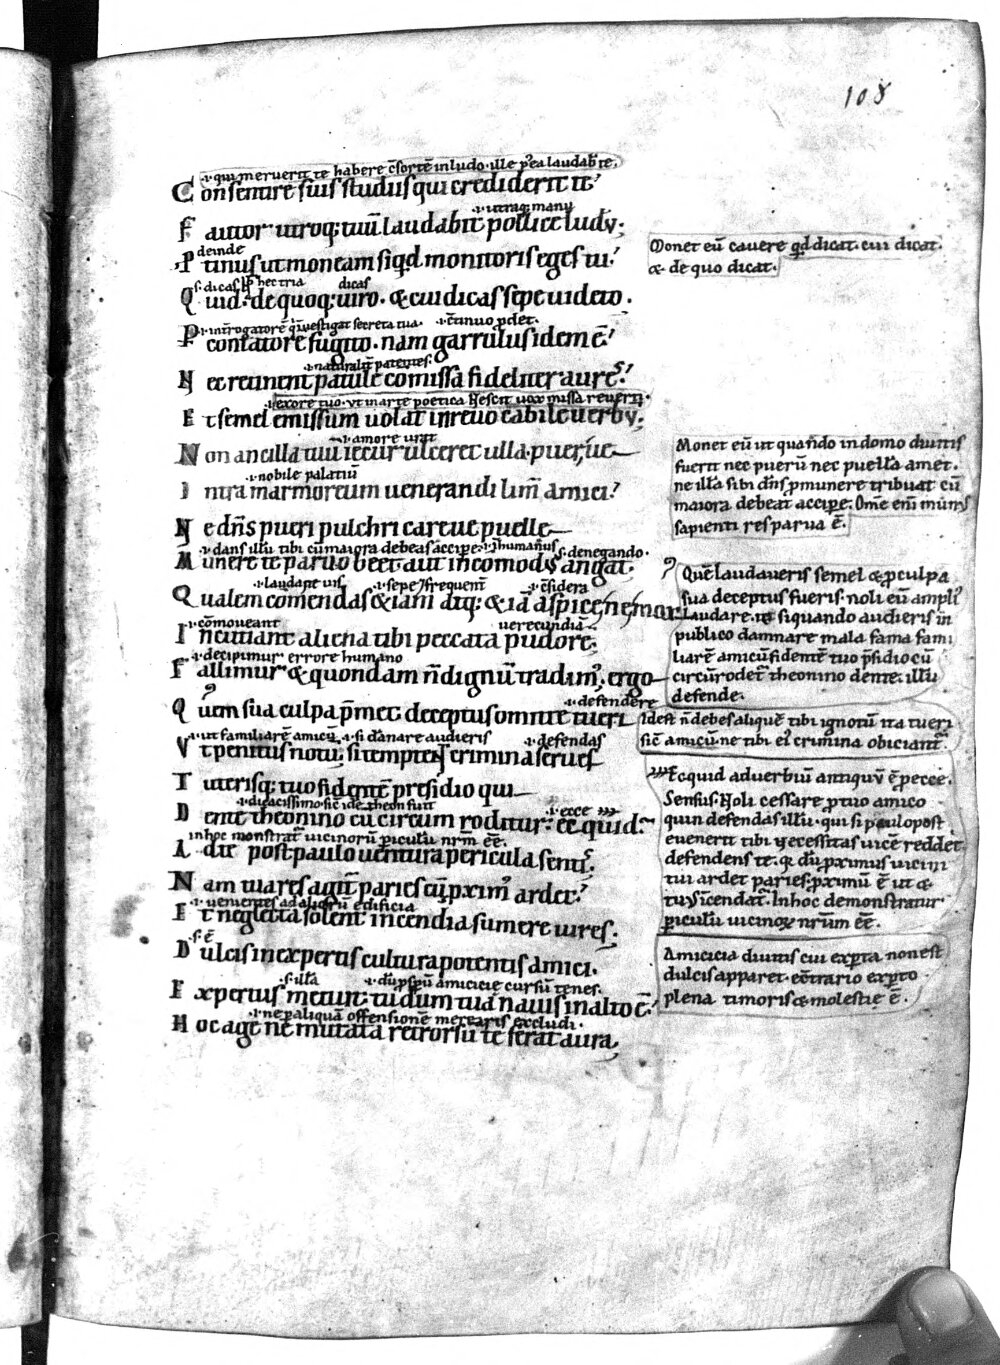 108
.i. qui meruerit te habere c̄sortē in ludo. ille p̄ea laudab̄ te.
Consentire suis studiis qui crediderit te
.i. utraq; manu
Fautor utroq; tuū laudabit pollice ludū;
deinde
Protinus ut moneam siqd monitoris eges tu
s. dicas hec tria dicas
Quid. de quoq; uiro. & cui dicas sepe uideto.
.i. int̄rogatorē secreta tua. .i. c̄tinuo
Percontatorē fugito. nam garrulus idem ē
.i. naturalit̄ patentes.
Nec retinent patule cōmissa fideliter aures.
.i. exore tuo. ut in arte poetica Nescit uox missa reuerti.
Et semel emissum uolat inreuocabile uerbū;
.i. amore urat
Non ancilla tuū iecur ulceret ulla. puer,ue
.i. nobile palatiū
Intra marmoreum uenerandi limē amici.
Ne dn̄s pueri pulchri careue puelle
.i. dans illū tibi cū maiora debeas accipe. .i. īhumanus s. denegando.
Munere te paruo beet aut incomodus angat.
.i. laudare uis .i. sepe frequent̄ .i. c̄sidera
Qualem cōmendas & iam atq; & iā aspice, ne mox
.i. cōmoueant uerecundiā
Incutiant aliena tibi peccata pudorē;
.i. decipimur errore humano
Fallimur & quondam n̄ dignū tradim,, ergo
.i. defendere
Quem sua culpa p̄met. deceptus omitte tueri
.i. ut familiarē amicū .i. si dānare audieris .i. defendas
Vt penitus notū, si temptent crimina serues
Tuterisq; tuo fidentē presidio qui
Dente theonino cū circum roditur. ecquid.
.i. ecce
in hoc monstrat̄ uicinorū p̄iculū nr̄m ēē.
Ad te post paulo uentura pericula sentis.
Nam tua res agit̄ paries cū p̄xim, ardet.
.i. uenientes ad aliorū edificia
Et neglecta solent incendia sumere uires.
s. ē
Dulcis inexpertis cultura potentis amici.
s. illā .i. amicicie cursū tenes.
Expertus metuit. tu dum tua nauis in alto ē
.i. ne p̄ aliquā offensionē mereraris excludi.
Hoc age ne mutata retrorsū te ferat aura,
Monet eū cauere qd dicat. cui dicat.
& de quo dicat.
Monet eū ut quando in domo diuitis
fuerit nec puerū nec puellā amet.
ne illā sibi dn̄s p̄ munere tribuat cū
maiora debeat accipe. Om̄e enī mun,
sapienti res parua ē.
Quē laudaueris semel & p̄ culpa
sua deceptus fueris. noli eū ampli,
laudare. ut siquando audieris in
publico damnare mala fama fami
liarē amicū fidentē tuo p̄sidio cū
circūrodet̄ theonino dente. illū
defende.
Idest n̄ debes aliquē tibi ignotū ita tueri
sic̄ amicū. ne tibi ei, crimina obiciant̄.
Ecquid aduerbiū antiquū ē p̄ ecce.
Sensus. Noli cessare p̄ tuo amico
quin defendas illū. qui si paulo post
euenerit tibi necessitas uicē reddet
defendens te. q̄ dū p̄ximus uicini
tui ardet paries. p̄ximū ē ut &
tuus incendat̄. In hoc demonstratur
p̄iculū uicinoȝ nr̄um ēē.
Amicicia diuitis cui exp̄ta non est
dulcis apparet. ec̄trario exp̄to
plena timoris & molestie ē.